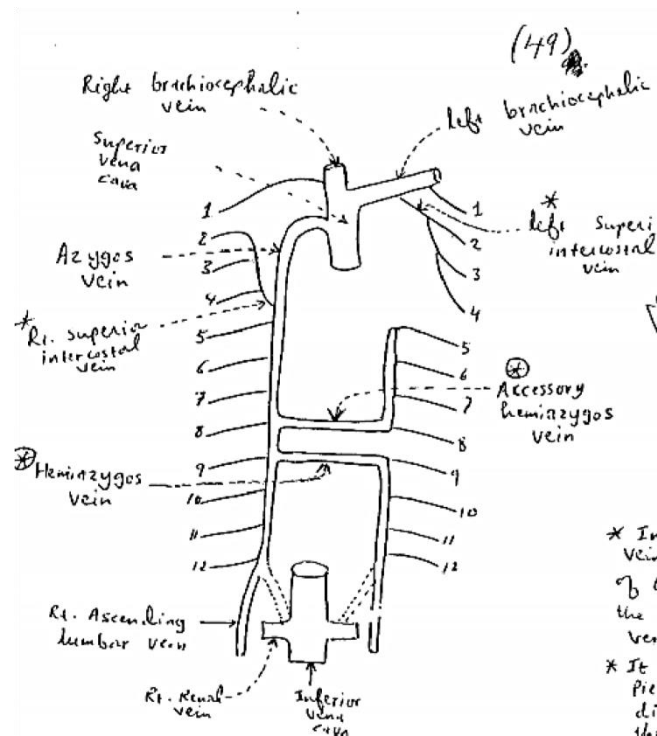 (49)
Right brachiocephalic
vein
left brachiocephalic
vein
Superior
vena
cava
1
2
3
4
5
6
7
8
9
10
11
12
1
2
3
4
5
6
7
8
9
10
11
12
* left Superi
intercostal
vein
Azygos
vein
* Rt. Superior
intercostal
vein
* Accessory
hemiazygos
vein
* Hemiazygos
vein
Rt. Ascending
lumbar vein
Rt. Renal
vein
Inferior
vena
cava
* In
vein
of
the
ver
* It
Pie
di